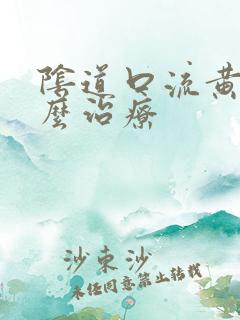 陰道口流黃
麼治療
沙東沙
未经同意禁止转载